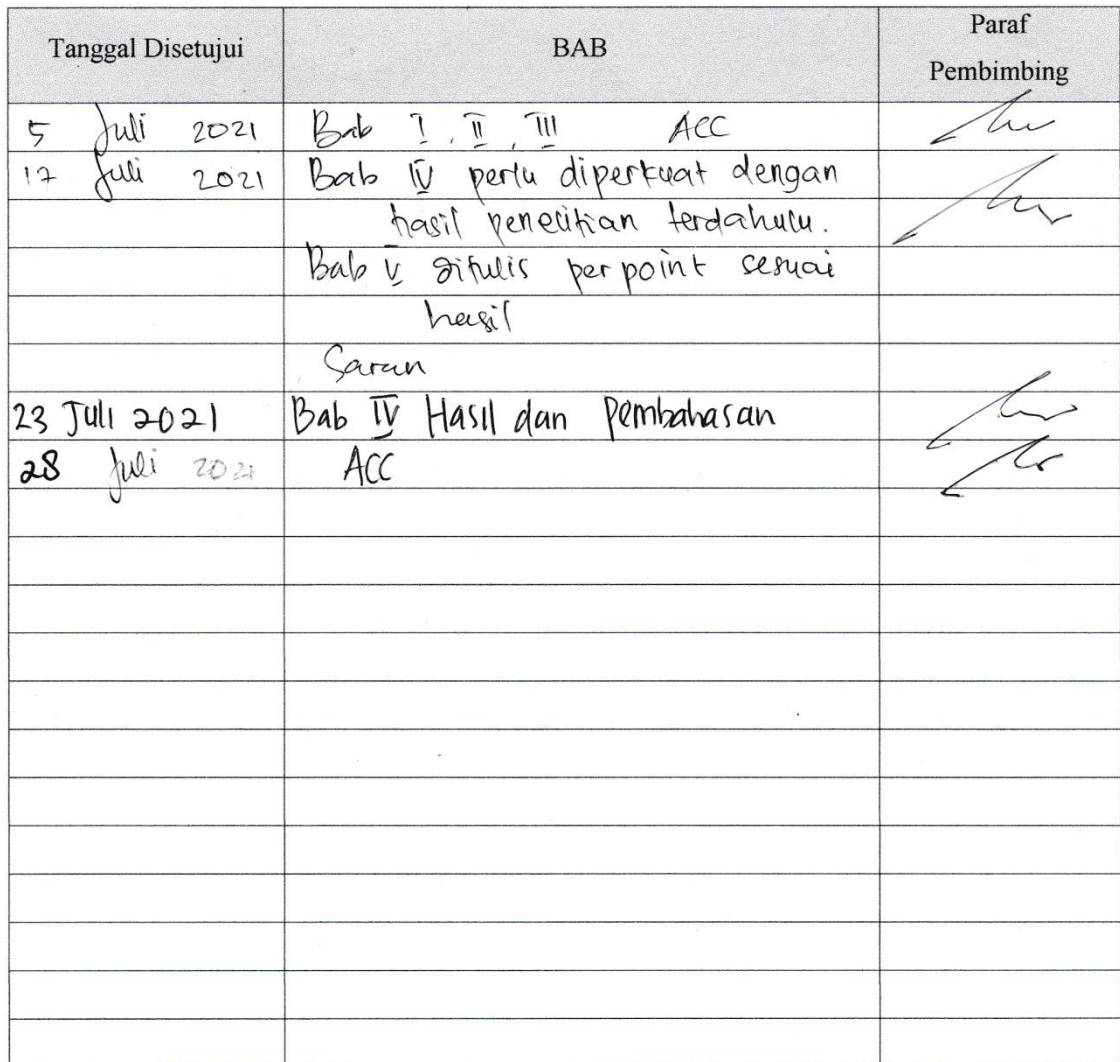 Tanggal Disetujui BAB Paraf
Pembimbing
5 Juli 2021 Bab I, II, III ACC
17 Juli 2021 Bab IV perlu diperkuat dengan
hasil penelitian terdahulu.
Bab V ditulis per point sesuai
hasil
Saran
23 Juli 2021 Bab IV Hasil dan Pembahasan
28 Juli 2021 ACC